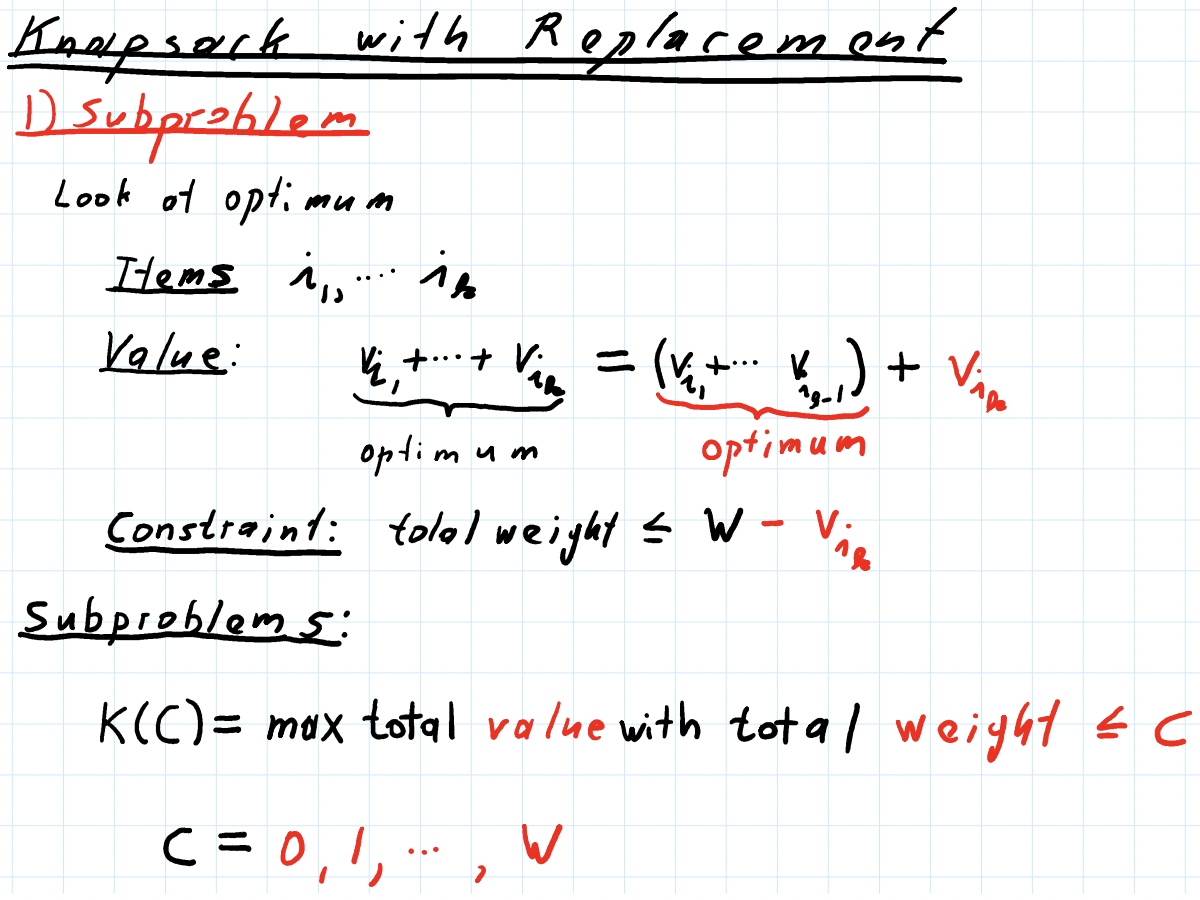 Knapsack with Replacement
1) Subproblem
Look at optimum
Items i₁, ... iₖ
Value: v_{i₁} + ... + v_{iₖ} = (v_{i₁} + ... v_{iₖ₋₁}) + v_{iₖ}
optimum optimum
Constraint: total weight ≤ W - v_{iₖ}
Subproblems:
K(C) = max total value with total weight ≤ C
C = 0, 1, ... , W